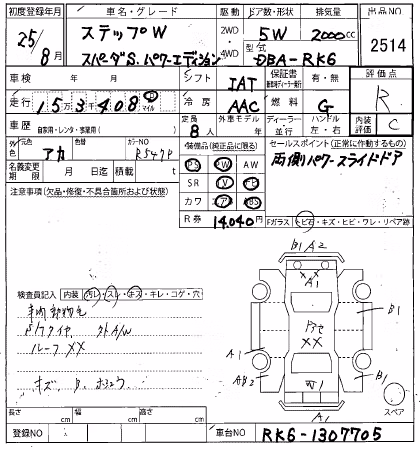 初度登録年月 車名・グレード 駆動 ドア数・形状 排気量 出品NO
25/8月 ステップW 2WD・4WD 5W 2000cc 2514
スパーダS. パワーエディション 型式 DBA-RK6
車検 年 月 シフト IAT 保証書 有・無 評価点
走行 153千408 マイル 冷房 AAC 燃料 G R
車歴 自家用・レンタ・事業用( ) 定員 8人 外車モデル 年 ディーラー 並行 ハンドル 左・右 内装評価 C
外色 元色 アカ 色替 カラーNO R547P 装備品(純正品に限る) セールスポイント(正常に作動するもの)
名義変更期限 月 日迄 積載 t PS PW AW 両側パワースライドドア
注意事項(欠品・修復・不具合箇所および状態) SR
カワ ABS
R券 14,040円 Fガラス トビ石・キズ・ヒビ・ワレ・リペア跡
B1 A2
A1
検査員記入 内装 汚レ・スレ・キズ・キレ・コゲ・穴
B1
ドアセ
××
ルーフ××
A1
AB2
B1
A1
スペア
長さ cm 幅 cm 高さ cm
登録NO 車台NO RK6-1307705